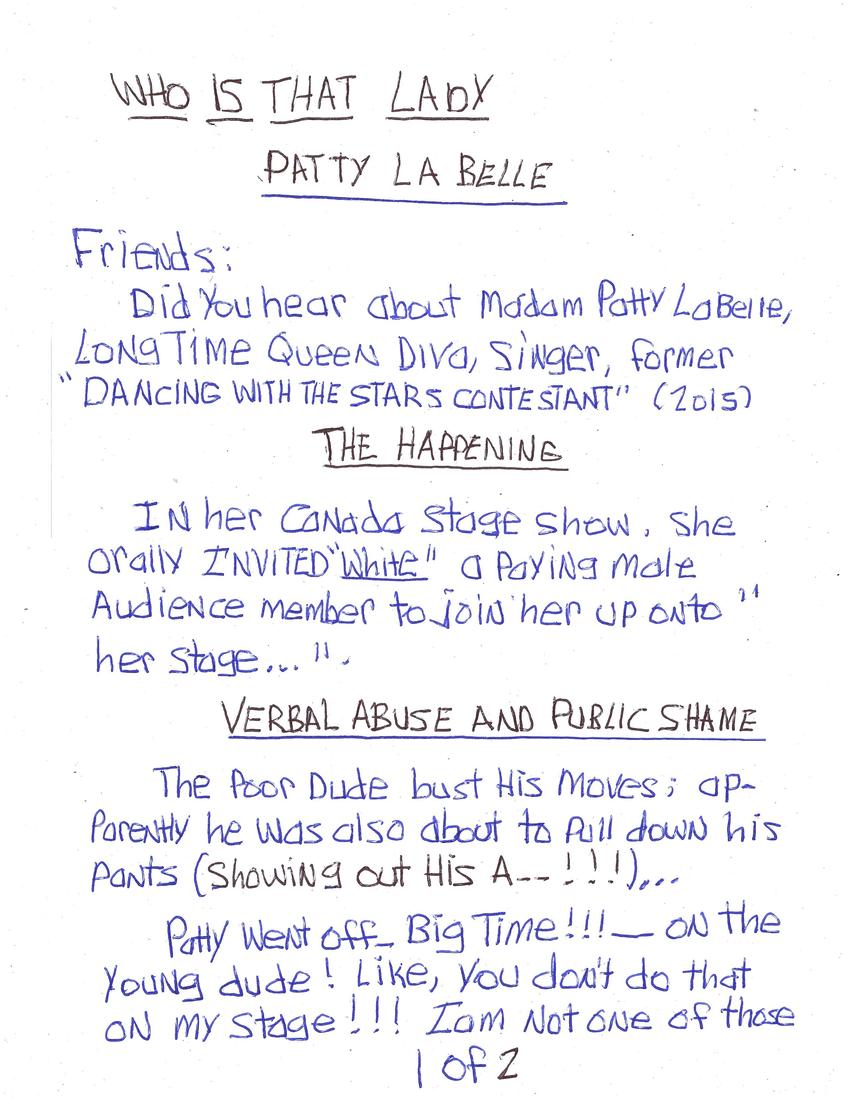 WHO IS THAT LADY
PATTY LA BELLE
Friends:
Did You hear about Madam Patty LaBelle,
LONG TIME QUEEN DIVA, SINGER, former
"DANCING WITH THE STARS CONTESTANT" (2015)
THE HAPPENING
IN her CANADA Stage show, she
orally INVITED "White" a PAYING male
AUDIENCE member to join her up onto "
her stage...".
VERBAL ABUSE AND PUBLIC SHAME
The Poor Dude bust His Moves; ap-
Parently he was also about to Pull down his
Pants (Showing out His A--!!!)...
Patty Went off_ Big Time!!!— ON the
Young dude! Like, you don't do that
ON my stage!!! I am Not one of those
1 of 2